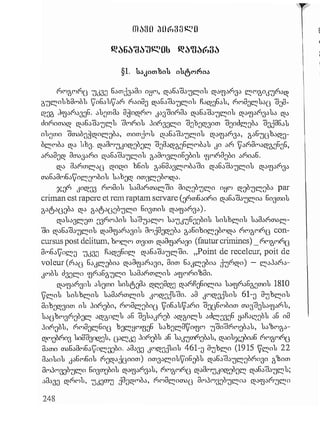 თავი პირველი
დანაშაულის დაფარვა
§1. საკითხის ისტორია
როგორც უკვე ნათქვამი იყო, დანაშაულის დაფარვა ლოგიკურად
გულისხმობს წინასწარ რაიმე დანაშაულის ჩადენას, რომელსაც შემ-
დეგ ჰფარავენ. ასეთმა მჭიდრო კავშირმა დანაშაულის დაფარვასა და
ძირითად დანაშაულს შორის პირველი შეხედვით შეიძლება შექმნას
ისეთი შთაბეჭდილება, თითქოს დანაშაულის დაფარვა, განუცხადე-
ბლობა და სხვ. დამოუკიდებელ შემადგენლობას კი არ წარმოადგენენ,
არამედ მთავარი დანაშაულის გამოვლინების ფორმები არიან.
და მართლაც დიდი ხნის განმავლობაში დანაშაულის დაფარვა
თანამონაწილეობის სახედ ითვლებოდა.
ჯერ კიდევ რომის სამართალში მიღებული იყო დებულება par
criman est rapere et rem raptam servare (ერთნაირი დანაშაულია ნივთის
გატაცება და გატაცებული ნივთის დაფარვა).
დასავლეთ ევროპის საშუალო საუკუნეების სისხლის სამართალ-
ში დანაშაულის დამფარავის მოქმედება განიხილებოდა როგორც con-
cursus post delitum, ხოლო თვით დამფარავი (fautur crimines) _ როგორც
მონაწილე უკვე ჩადენილ დანაშაულში. „Point de receleur, poit de
voleur (რაც ნაკლებია დამფარავი, მით ნაკლებია ქურდი) – ლაპარა-
კობს ძველი ფრანგული სამართლის აფორიზმი.
დაფარვის ასეთი სისტემა დღემდე დარჩენილია საფრანგეთის 1810
წლის სისხლის სამართლის კოდექსში. ამ კოდექსის 61-ე მუხლის
მიხედვით ის პირები, რომლებიც წინასწარი შეცნობით თავშესაფარს,
საცხოვრებელ ადგილს ან შესაკრებ ადგილს აძლევენ ყაჩაღებს ან იმ
პირებს, რომელნიც ხელყოფენ სახელმწიფო უშიშროებას, საზოგა-
დოებრივ სიმშვიდეს, ცალკე პირებს ან საკუთრებას, დაისჯებიან როგორც
მათი თანამონაწილეები. ამავე კოდექსის 461-ე მუხლი (1915 წლის 22
მაისის კანონის რედაქციით) ითვალისწინებს დანაშაულებრივი გზით
მოპოვებული ნივთების დაფარვას, როგორც დამოუკიდებელ დანაშაულს;
ამავე დროს, უკეთუ ქმედობა, რომლითაც მოპოვებულია დაფარული
248